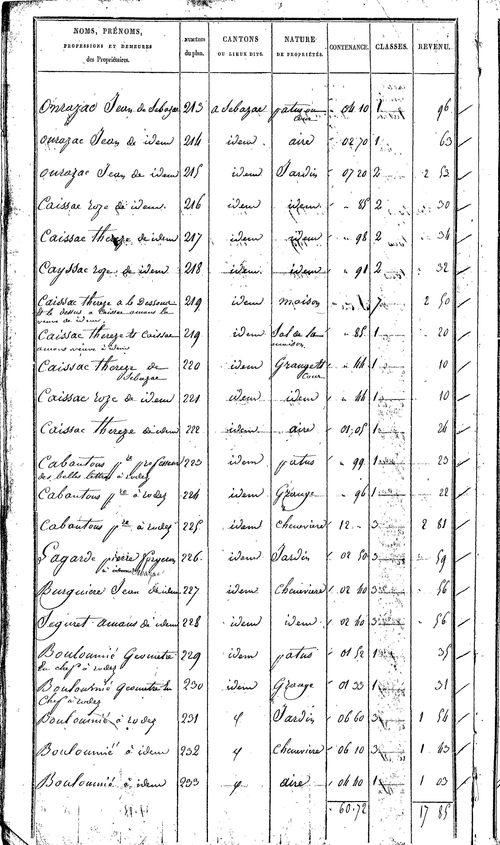 NOMS, PRÉNOMS, PROFESSIONS ET DEMEURES des Propriétaires. NUMÉROS du plan. CANTONS OU LIEUX DITS. NATURE DE PROPRIÉTÉS. CONTENANCE. CLASSES. REVENU.
Onrazac Jean de Sebazac 213 a Sebazac patus ou cour 04 10 1 96
onrazac Jean de idem 214 idem aire 02 70 1 63
onrazac Jean de idem 215 idem Jardin 07 20 2 2 53
Caissac roze de idem 216 idem idem " 85 2 30
Caissac thereze de idem 217 idem idem " 98 2 34
Cayssac roze de idem 218 idem idem " 91 2 32
Caissac thereze a le Dessous 219 idem maison 7 2 50
Caissac thereze et Caissac 219 idem Sol de la maison " 85 1 20
Caissac thereze de Sebazac 220 idem Grange et Cour " 44 1 10
Caissac roze de idem 221 idem idem " 44 1 10
Caissac thereze de idem 222 idem aire 01 05 1 24
Cabantous pre professeur des belles lettres a rodez 223 idem patus " 99 1 23
Cabantous pre a rodez 224 idem Grange " 96 1 22
Cabantous pre a rodez 225 idem cheneviere 12 " 3 2 81
Lagarde pierre forgeron a idem 226 idem Jardin 02 50 3 59
Burguiere Jean de idem 227 idem Cheneviere 02 40 3 56
Seguret amans de idem 228 idem idem 02 40 3 56
Bouloumié Geometre en chef a rodez 229 idem patus 01 52 1 35
Bouloumié Geometre en chef a rodez 230 idem Grange 01 33 1 31
Bouloumié a rodez 231 φ Jardin 06 60 3 1 54
Bouloumié a idem 232 φ Cheneviere 06 10 3 1 43
Bouloumié a idem 233 φ aire 04 40 1 1 03
60.72 17 85